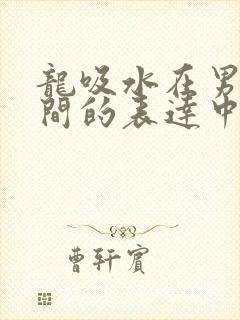 龍吸水在男
間的表達中
曹軒賓